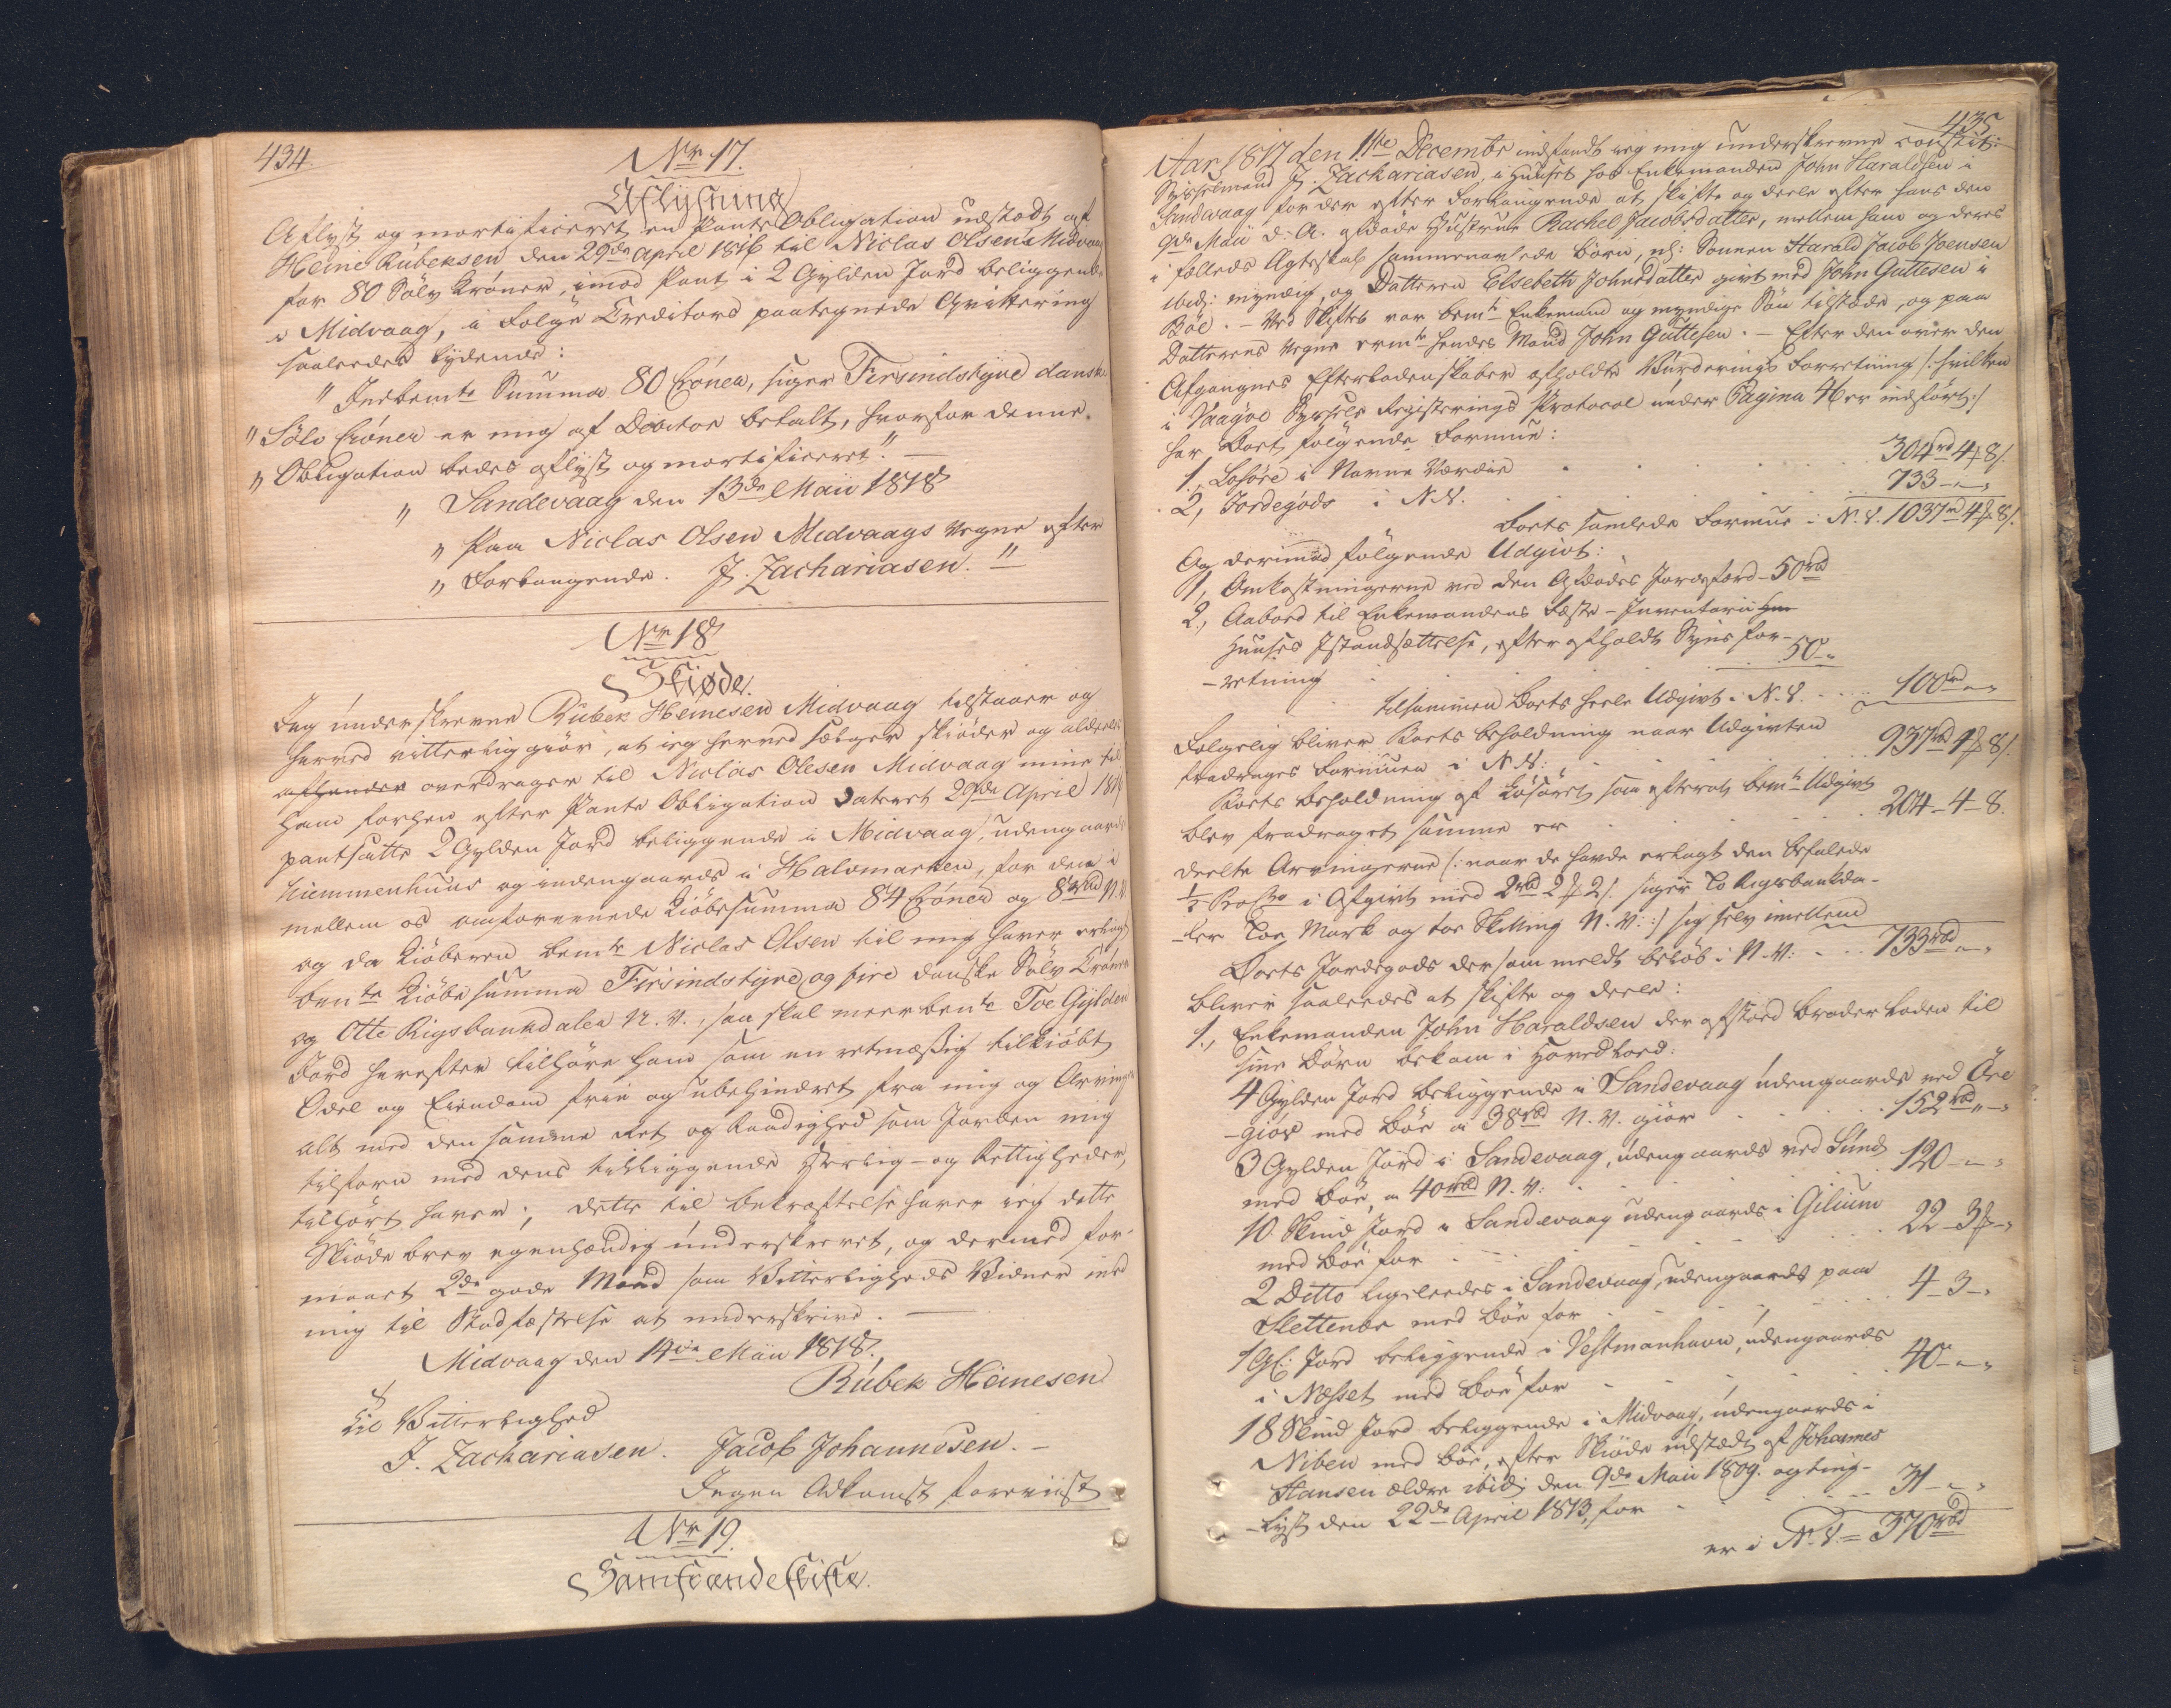 434.
No 17.
Aflysning
Aflyst og mortificeret en Pante Obligation udstædt af
Heine Rubeksen den 29de April 1816 til Niclas Olsen a Midvaag
for 80 Sølv Kroner, imod Pant i 2 Gylden Jord beliggende
i Midvaag, i Følge Creditors paategnede Qvittering
saaledes lydende:
" Indbemte Summa 80 Croner, siger Firsindstyve danske
" Sølv Croner er mig af Debitor betalt, hvorfor denne
" Obligation bedes aflyst og mortificeret". —
" Sandevaag den 13de Maii 1818
" Paa Niclas Olsen Midvaags Vegne efter
" Forlangende. J. Zachariasen. "
No 18
Skiøde.
Jeg underskrevne Rubek Heinesen Midvaag tilstaaer og
herved vitterliggiør, at jeg herved sælger skiøder og aldeeles
afhænder overdrager til Niclas Olesen Midvaag mine til
ham forhen efter Pante Obligation dateret 29de April 1816
pantsatte 2 Gylden Jord beliggende i Midvaag, udengaards
hiemmenhuus og indengaards i Halvmarken, for den i
mellem os omforeenede Kiøbesumma 84 Croner og 8 rbd N.V.
og da Kiøberen bemte Niclas Olsen til mig haver erlagt
bemte Kiøbe summa Firsindstyve og fire danske Sølv Croner
og Otte Rigsbankdaler N.V., saa skal meerbemte Toe Gylden
Jord herefter tilhøre ham som en retmæssig tilkiøbt
Odel og Eiendom frie og ubehindret fra mig og Arvinger
alt med den samme Ret og Raadighed som Jorden mig
tilforn med dens tilliggende Herlig- og Rettigheder,
tilhørt haver; dette til Bekræftelse haver jeg dette
Skiøde brev egenhændig underskrevet, og dermed for-
maaet 2de gode Mænd som Vitterligheds Vidner med
mig til Stadfæstelse at underskrive.
Midvaag den 14de Maii 1818.
Rubek Heinesen
Til Vitterlighed
J. Zachariasen. Jacob Johannesen. —
Ingen Adkomst foreviist
No 19.
Samfrændeskifte.
435
Aar 1817 den 11te Decembr indfandt jeg mig underskrevne constit:
Sysselmand J. Zachariasen, i Huuset hos Enkemanden John Haraldsen i
Sandevaag for der efter Forlangende at skifte og deele efter hans den
9de Maii d: A. afdøde Hustrue Rachel Jacobsdatter, mellem ham og deres
i fælleds Ægteskab sammenavlede Børn, nl: Sønnen Harald Jacob Joensen
ibid: myndig, og Datteren Elsebeth Johnsdatter givt med John Guttesen i
Bøe. — Ved Skiftet var bemte Enkemand og myndige Søn tilstæde, og paa
Datterens Vegne ermte hendes Mand John Guttesen. — Efter den over den
Afgangnes Efterladenskaber afholdte Vurderings Forretning /: hvilken
i Vaagøe Syssels Registerings Protocol under Pagina 46 er indført :/
har Boet følgende Formue:
1, Løsøre i Navne Værdie . . . 304 rd 4 ₰ 8 s.
2, Jordegods i N.V. . . . 733 - " - "
Boets samlede Formue i N.V. 1037 rd 4 ₰ 8 s.
Og derimod følgende Udgivt:
1, Omkostningerne ved den Afdødes Jordefærd - 50 rd
2, Aabod til Enkemandens Fæste-Inventarii
Huuses Istandsættelse, efter afholdt Syns for-
-retning . . . 50 - "
tilsammen Boets heele Udgivt i N.V. . . . 100 rd - "
Følgelig bliver Boets Beholdning naar Udgivten
fradrages Formuen i N.V: . . 937 rd 4 ₰ 8 s.
Boets Beholdning af Løsøret som efterat bemte Udgivt
blev fradraget samme er . . . 204 - 4 - 8.
deelte Arvingerne /: naar de havde erlagt den befalede
i Afgivt med 2 rbd 2 ₰ 2 s. siger To Rigsbankda-
-ler Toe Mark og toe Skilling N.V: :/ sig selv imellem
Boets Jordegods der som meldt beløb i N.V: . . . 733 rbd - "
bliver saaledes at skifte og deele:
1., Enkemanden John Haraldsen der afstoed Broder Loden til
sine Børn bekom i Hovedlod:
4 Gylden Jord beliggende i Sandevaag udengaards ved
-giov med Bøe a 38 rbd N.V. giør . . . 152 rbd " - "
3 Gylden Jord i Sandevaag, udengaards ved Sund
med Bøe, a 40 rbd N.V: . . . 120 - " - "
10 Skind Jord i Sandevaag udengaards i Gilium
med Bøe for . . . 22 - 3 ₰ - "
2 Ditto ligeleedes i Sandevaag, udengaards paa
Slettenoe med Bøe for . . . 4 - 3 - "
1 Gl: Jord beliggende i Vestmanhavn, udengaards
i Nesset med Bøe for . . . 40 - " - "
18 Skind Jord beliggende i Midvaag, udengaards i
Niben med Bøe, efter Skiøde udstædt af Johannes
Hansen ældre ibid: den 9de Maii 1809. og ting-
-lyst den 22de April 1813, for . . . 31 - " - "
er i N.V. = 370 rbd